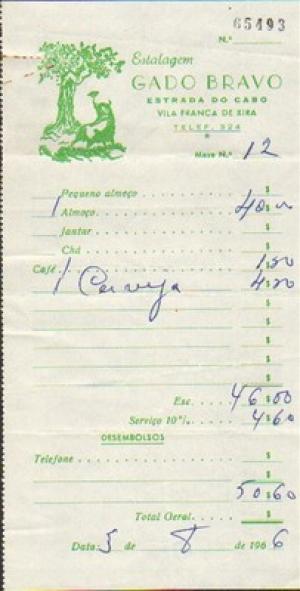 65493
N.º
Estalagem
GADO BRAVO
ESTRADA DO CABO
VILA FRANCA DE XIRA
TELEF. 524
Mesa N.º 12
Pequeno almoço $
1 Almoço 40$00
Jantar $
Chá $
Café 1$50
1 Cerveja 4$50
$
$
$
$
$
Esc. 46$00
Serviço 10% 4$60
DESEMBOLSOS
Telefone $
$
50$60
Total Geral $
Data: 5 de 8 de 1966